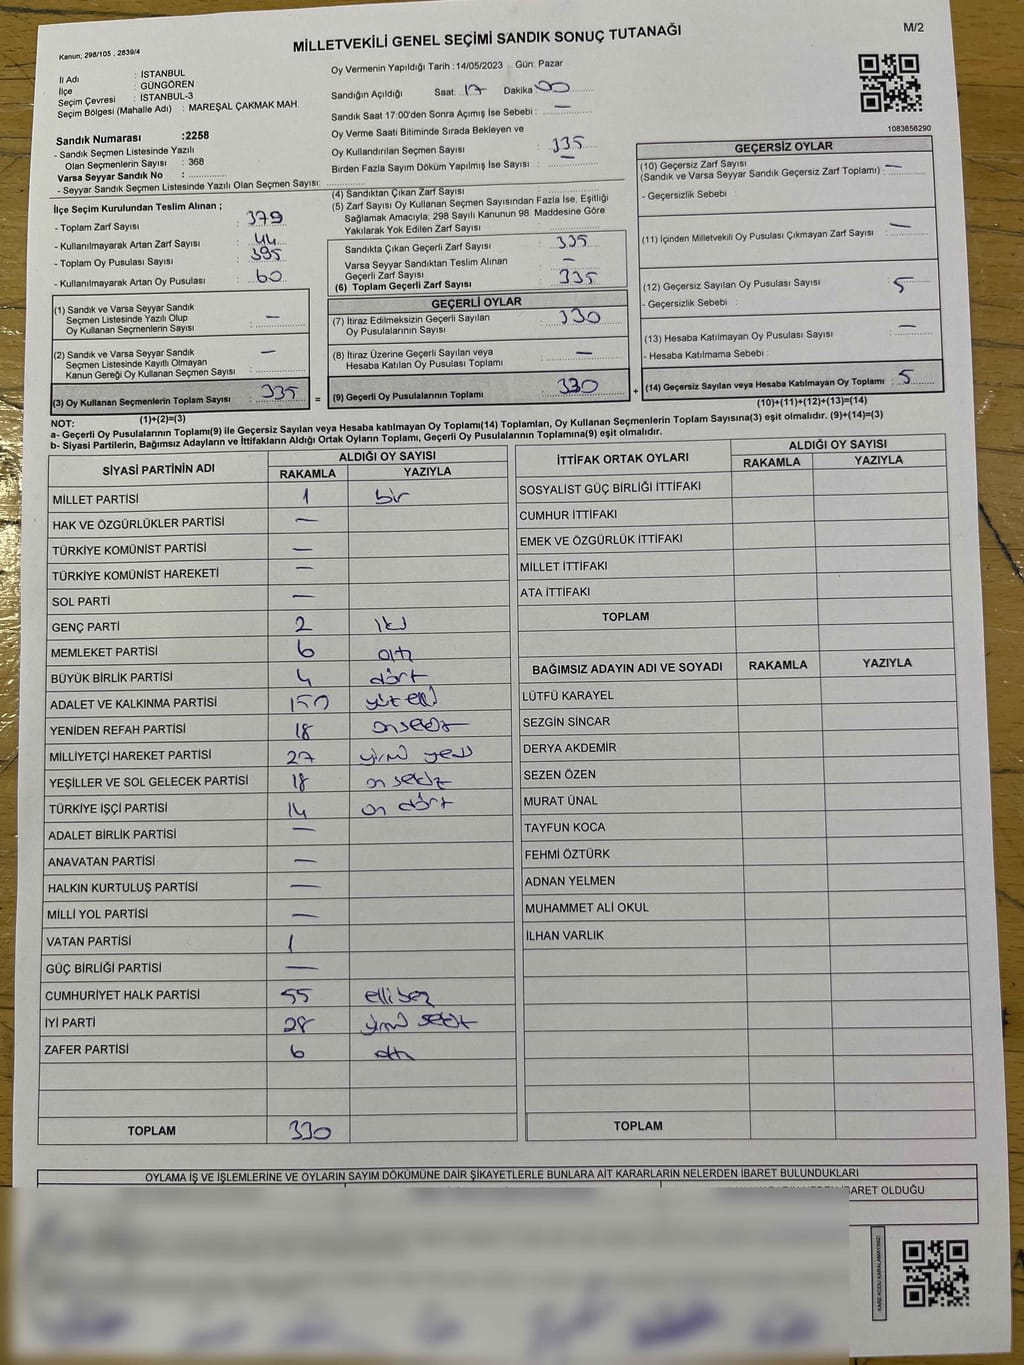 MİLLETVEKİLİ GENEL SEÇİMİ SANDIK SONUÇ TUTANAĞI
M/2
Kanun; 298/105 , 2839/4
İl Adı : İSTANBUL
İlçe : GÜNGÖREN
Seçim Çevresi : İSTANBUL-3
Seçim Bölgesi (Mahalle Adı) : MAREŞAL ÇAKMAK MAH.
Sandık Numarası :2258
- Sandık Seçmen Listesinde Yazılı
Olan Seçmenlerin Sayısı : 368
Varsa Seyyar Sandık No :
- Seyyar Sandık Seçmen Listesinde Yazılı Olan Seçmen Sayısı:
Oy Vermenin Yapıldığı Tarih :14/05/2023 Gün: Pazar
Sandığın Açıldığı Saat: 17 Dakika: 00
Sandık Saat 17:00'den Sonra Açımış İse Sebebi : —
Oy Verme Saati Bitiminde Sırada Bekleyen ve
Oy Kullandırılan Seçmen Sayısı : 335
Birden Fazla Sayım Döküm Yapılmış İse Sayısı : —
1083656290
İlçe Seçim Kurulundan Teslim Alınan ;
- Toplam Zarf Sayısı : 379
- Kullanılmayarak Artan Zarf Sayısı : 44
- Toplam Oy Pusulası Sayısı : 395
- Kullanılmayarak Artan Oy Pusulası : 60
(1) Sandık ve Varsa Seyyar Sandık
Seçmen Listesinde Yazılı Olup
Oy Kullanan Seçmenlerin Sayısı : —
(2) Sandık ve Varsa Seyyar Sandık
Seçmen Listesinde Kayıtlı Olmayan
Kanun Gereği Oy Kullanan Seçmen Sayısı : —
(3) Oy Kullanan Seçmenlerin Toplam Sayısı : 335
(1)+(2)=(3)
(4) Sandıktan Çıkan Zarf Sayısı :
(5) Zarf Sayısı Oy Kullanan Seçmen Sayısından Fazla İse, Eşitliği
Sağlamak Amacıyla; 298 Sayılı Kanunun 98. Maddesine Göre
Yakılarak Yok Edilen Zarf Sayısı :
Sandıkta Çıkan Geçerli Zarf Sayısı : 335
Varsa Seyyar Sandıktan Teslim Alınan
Geçerli Zarf Sayısı : —
(6) Toplam Geçerli Zarf Sayısı : 335
GEÇERLİ OYLAR
(7) İtiraz Edilmeksizin Geçerli Sayılan
Oy Pusulalarının Sayısı : 330
(8) İtiraz Üzerine Geçerli Sayılan veya
Hesaba Katılan Oy Pusulası Toplamı : —
= (9) Geçerli Oy Pusulalarının Toplamı : 330
GEÇERSİZ OYLAR
(10) Geçersiz Zarf Sayısı
(Sandık ve Varsa Seyyar Sandık Geçersiz Zarf Toplamı) : —
- Geçersizlik Sebebi :
(11) İçinden Milletvekili Oy Pusulası Çıkmayan Zarf Sayısı : —
(12) Geçersiz Sayılan Oy Pusulası Sayısı : 5
- Geçersizlik Sebebi :
(13) Hesaba Katılmayan Oy Pusulası Sayısı : —
- Hesaba Katılmama Sebebi :
+ (14) Geçersiz Sayılan veya Hesaba Katılmayan Oy Toplamı : 5
(10)+(11)+(12)+(13)=(14)
NOT:
a- Geçerli Oy Pusulalarının Toplamı(9) ile Geçersiz Sayılan veya Hesaba Katılmayan Oy Toplamı(14) Toplamları, Oy Kullanan Seçmenlerin Toplam Sayısına(3) eşit olmalıdır. (9)+(14)=(3)
b- Siyasi Partilerin, Bağımsız Adayların ve İttifakların Aldığı Ortak Oyların Toplamı, Geçerli Oy Pusulalarının Toplamına(9) eşit olmalıdır.
SİYASİ PARTİNİN ADI ALDIĞI OY SAYISI
RAKAMLA YAZIYLA
MİLLET PARTİSİ 1 bir
HAK VE ÖZGÜRLÜKLER PARTİSİ —
TÜRKİYE KOMÜNİST PARTİSİ —
TÜRKİYE KOMÜNİST HAREKETİ —
SOL PARTİ —
GENÇ PARTİ 2 iki
MEMLEKET PARTİSİ 6 altı
BÜYÜK BİRLİK PARTİSİ 4 dört
ADALET VE KALKINMA PARTİSİ 150 yüz elli
YENİDEN REFAH PARTİSİ 18 onsekiz
MİLLİYETÇİ HAREKET PARTİSİ 27 yirmi yedi
YEŞİLLER VE SOL GELECEK PARTİSİ 18 on sekiz
TÜRKİYE İŞÇİ PARTİSİ 14 on dört
ADALET BİRLİK PARTİSİ —
ANAVATAN PARTİSİ —
HALKIN KURTULUŞ PARTİSİ —
MİLLİ YOL PARTİSİ —
VATAN PARTİSİ 1
GÜÇ BİRLİĞİ PARTİSİ —
CUMHURİYET HALK PARTİSİ 55 elli beş
İYİ PARTİ 28 yirmi sekiz
ZAFER PARTİSİ 6 altı
TOPLAM 330
İTTİFAK ORTAK OYLARI ALDIĞI OY SAYISI
RAKAMLA YAZIYLA
SOSYALİST GÜÇ BİRLİĞİ İTTİFAKI
CUMHUR İTTİFAKI
EMEK VE ÖZGÜRLÜK İTTİFAKI
MİLLET İTTİFAKI
ATA İTTİFAKI
TOPLAM
BAĞIMSIZ ADAYIN ADI VE SOYADI RAKAMLA YAZIYLA
LÜTFÜ KARAYEL
SEZGİN SİNCAR
DERYA AKDEMİR
SEZEN ÖZEN
MURAT ÜNAL
TAYFUN KOCA
FEHMİ ÖZTÜRK
ADNAN YELMEN
MUHAMMET ALİ OKUL
İLHAN VARLIK
TOPLAM
OYLAMA İŞ VE İŞLEMLERİNE VE OYLARIN SAYIM DÖKÜMÜNE DAİR ŞİKAYETLERLE BUNLARA AİT KARARLARIN NELERDEN İBARET BULUNDUKLARI
İBARET OLDUĞU
KARE KODU KARALAMAYINIZ!